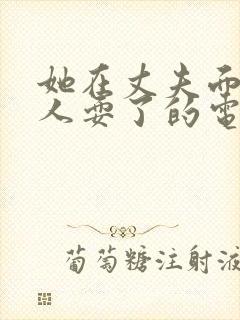 她在丈夫面
人耍了的电
葡萄糖注射液